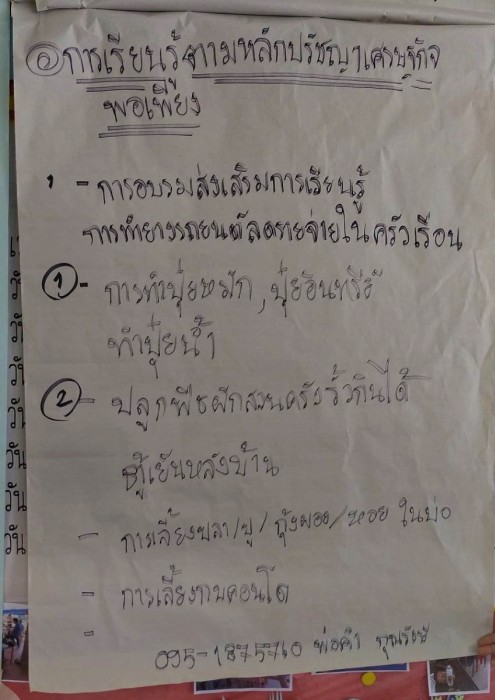 ๑ การเรียนรู้ตามหลักปรัชญาเศรษฐกิจ
พอเพียง
- การอบรมส่งเสริมการเรียนรู้
การทำยางรถยนต์ลดรายจ่ายในครัวเรือน
① - การทำปุ๋ยหมัก, ปุ๋ยอินทรีย์
ทำปุ๋ยน้ำ
② - ปลูกพืชผักสวนครัวรั้วกินได้
ตู้เย็นหลังบ้าน
- การเลี้ยงปลา/ปู/กุ้งฝอย/หอย ในบ่อ
- การเลี้ยงกบคอนโด
-
พ่อคำ
วัน
วัน
วัน